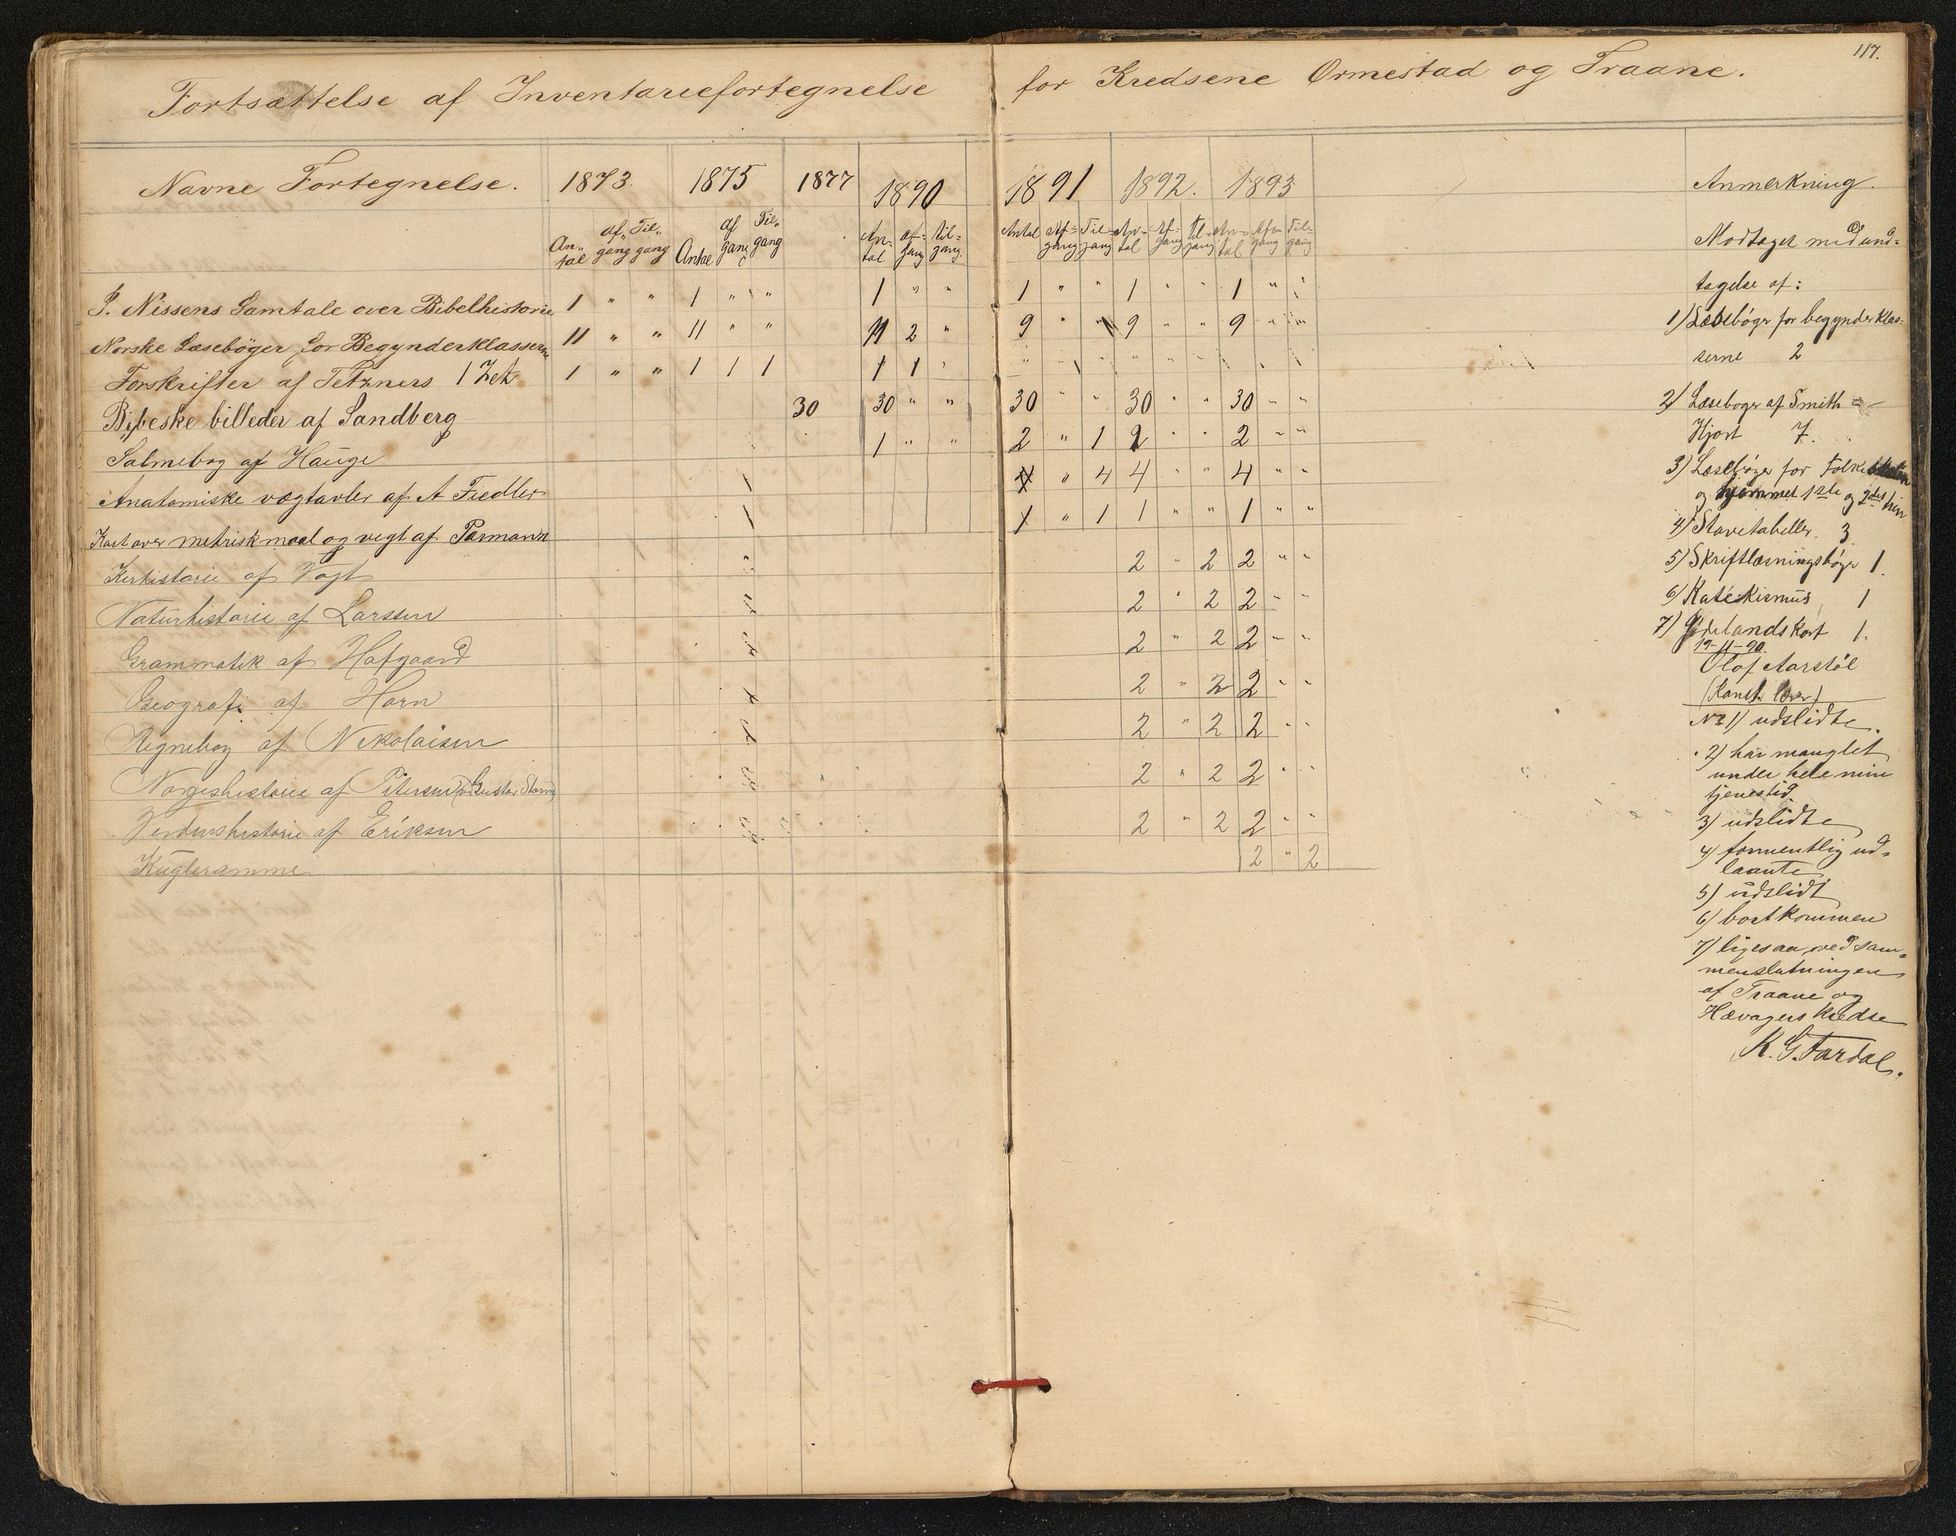 117.
Fortsættelse af Inventariefortegnelse for Kredsene Ormestad og Traane.
Navne Fortegnelse. 1873. 1875 1877 1890 1891 1892. 1893 Anmerkning.
An„tal af„gang Til„gang Antal afgang Til„gang An-tal af-gang til-gang Antal Af-gang Til-gang An-tal Af-gang til-gang An-tal Af-gang Til-gang
P. Nissens Samtale over Bibelhistorie 1 " " 1 " " 1 " " 1 " " 1 " " 1 " "
Norske Læsebøger for Begynderklasserne 11 " " 11 " " 11 2 " 9 " " 9 " " 9 " "
Forskrifter af Tetzners 1 Zet 1 " " 1 1 1 1 1 "
Bibelske billeder af Sandberg 30 30 " " 30 " " 30 " " 30 " "
Salmebog af Hauge 1 " " 2 " 1 2 " " 2 " "
Anatomiske vægtavler af A Fiedler 4 " 4 4 " " 4 " "
Kart over metrisk maal og vegt af Parmann 1 " 1 1 " " 1 " "
Kirkistorie af Vogt 2 " 2 2 " "
Naturhistorie af Larssen 2 " 2 2 " "
Grammatik af Hofgaard 2 " 2 2 " "
Geografi af Horn 2 " 2 2 " "
Regnebog af Nikolaisen 2 " 2 2 " "
Norgeshistorie af Petersen (Gustav Storm) 2 " 2 2 " "
Verdenshistorie af Eriksen 2 " 2 2 " "
Kugleramme 2 " 2
Modtaget med und-
tagelse af:
1) Læsebøger for begynderklas-
serne 2
2) Læsebøger af Smith =
Hjort 7.
3) Læsebøger for Folkeskolen
og hjemmet 1ste og 2det
4) Stavetabeller. 3
5) Skriftlæsningsbøger 1.
6) Katekismus, 1
7) Jødelandskort 1.
19-11-90.
Olaf Aarstøl
(Konst. lærer)
No 1) udslidte.
" 2) har manglet
under hele min
tjenestid.
3) udslidte
4) formentlig ud-
laante
5) udslidt
6) bortkommen
7) ligesaa ved sam-
menslutningen
af Traane og
Hævagers kredse
K. G. Fardal.